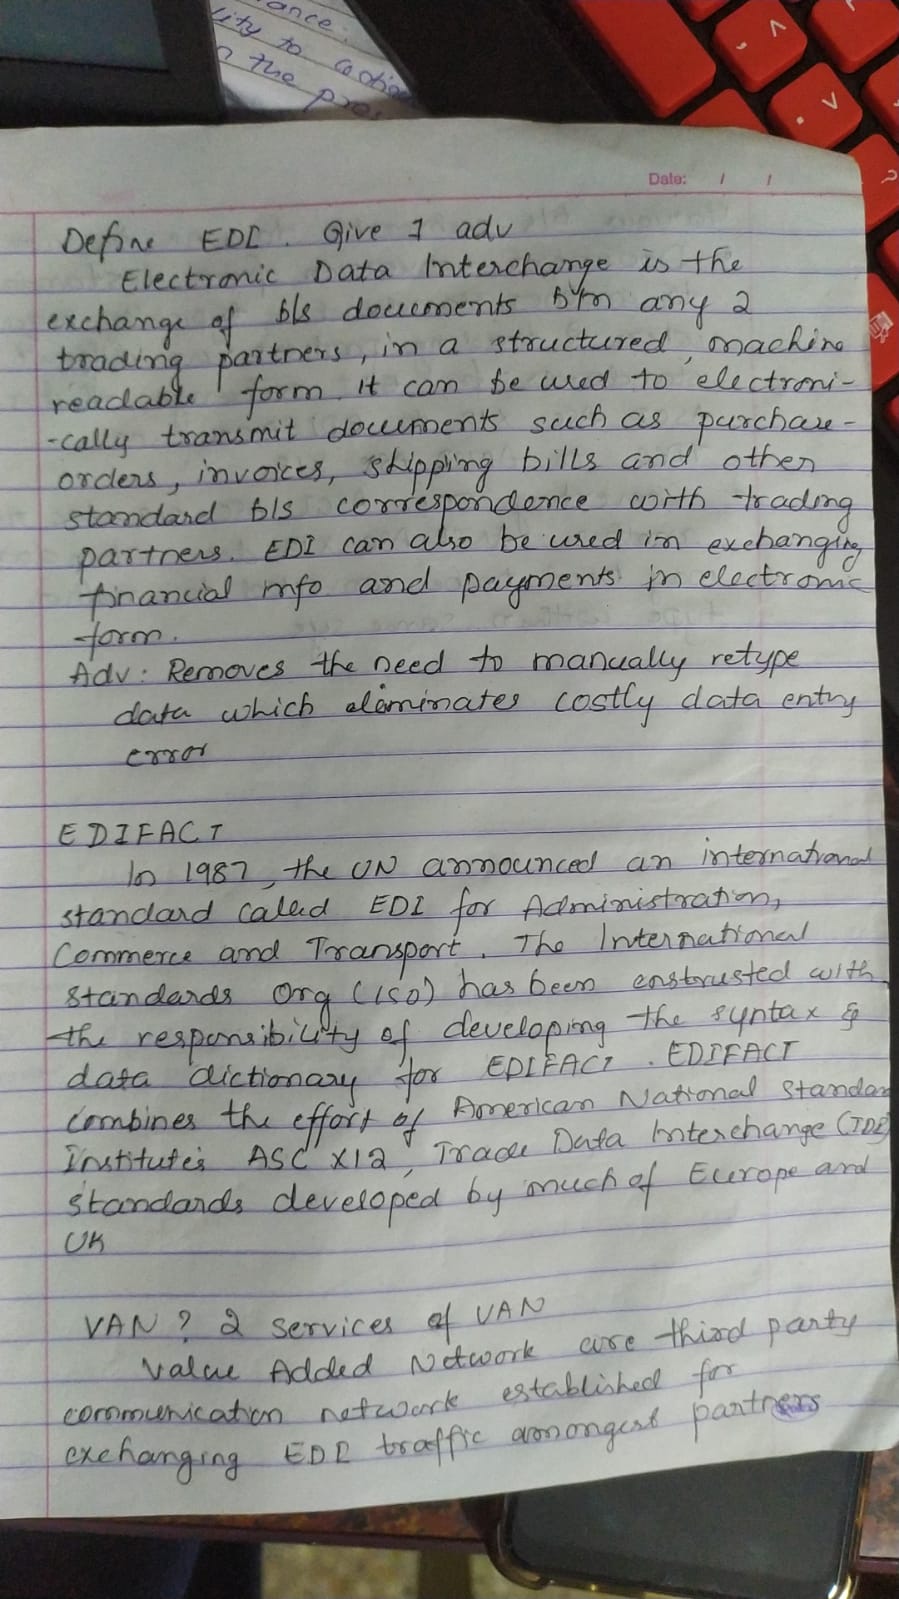 ance.
lity to
n the pro
Date: / /
Define EDI. Give 1 adv
Electronic Data Interchange is the
exchange of b/s documents b/n any 2
trading partners, in a structured, machine
readable form. It can be used to electroni-
-cally transmit documents such as purchase-
orders, invoices, shipping bills and other
standard b/s correspondence with trading
partners. EDI can also be used in exchanging
financial info and payments in electronic
form.
Adv: Removes the need to manually retype
data which eleminates costly data entry
error
EDIFACT
In 1987, the UN announced an international
standard called EDI for Administration,
Commerce and Transport. The International
Standards Org (ISO) has been enstrusted with
the responsibility of developing the syntax &
data dictionary for EDIFACT. EDIFACT
combines the effort of American National Standar
Institute's ASC X12, Trade Data Interchange (TDI)
standards developed by much of Europe and
UK
VAN? 2 services of VAN
Value Added Network are third party
communication network established for
exchanging EDI traffic amongest partners